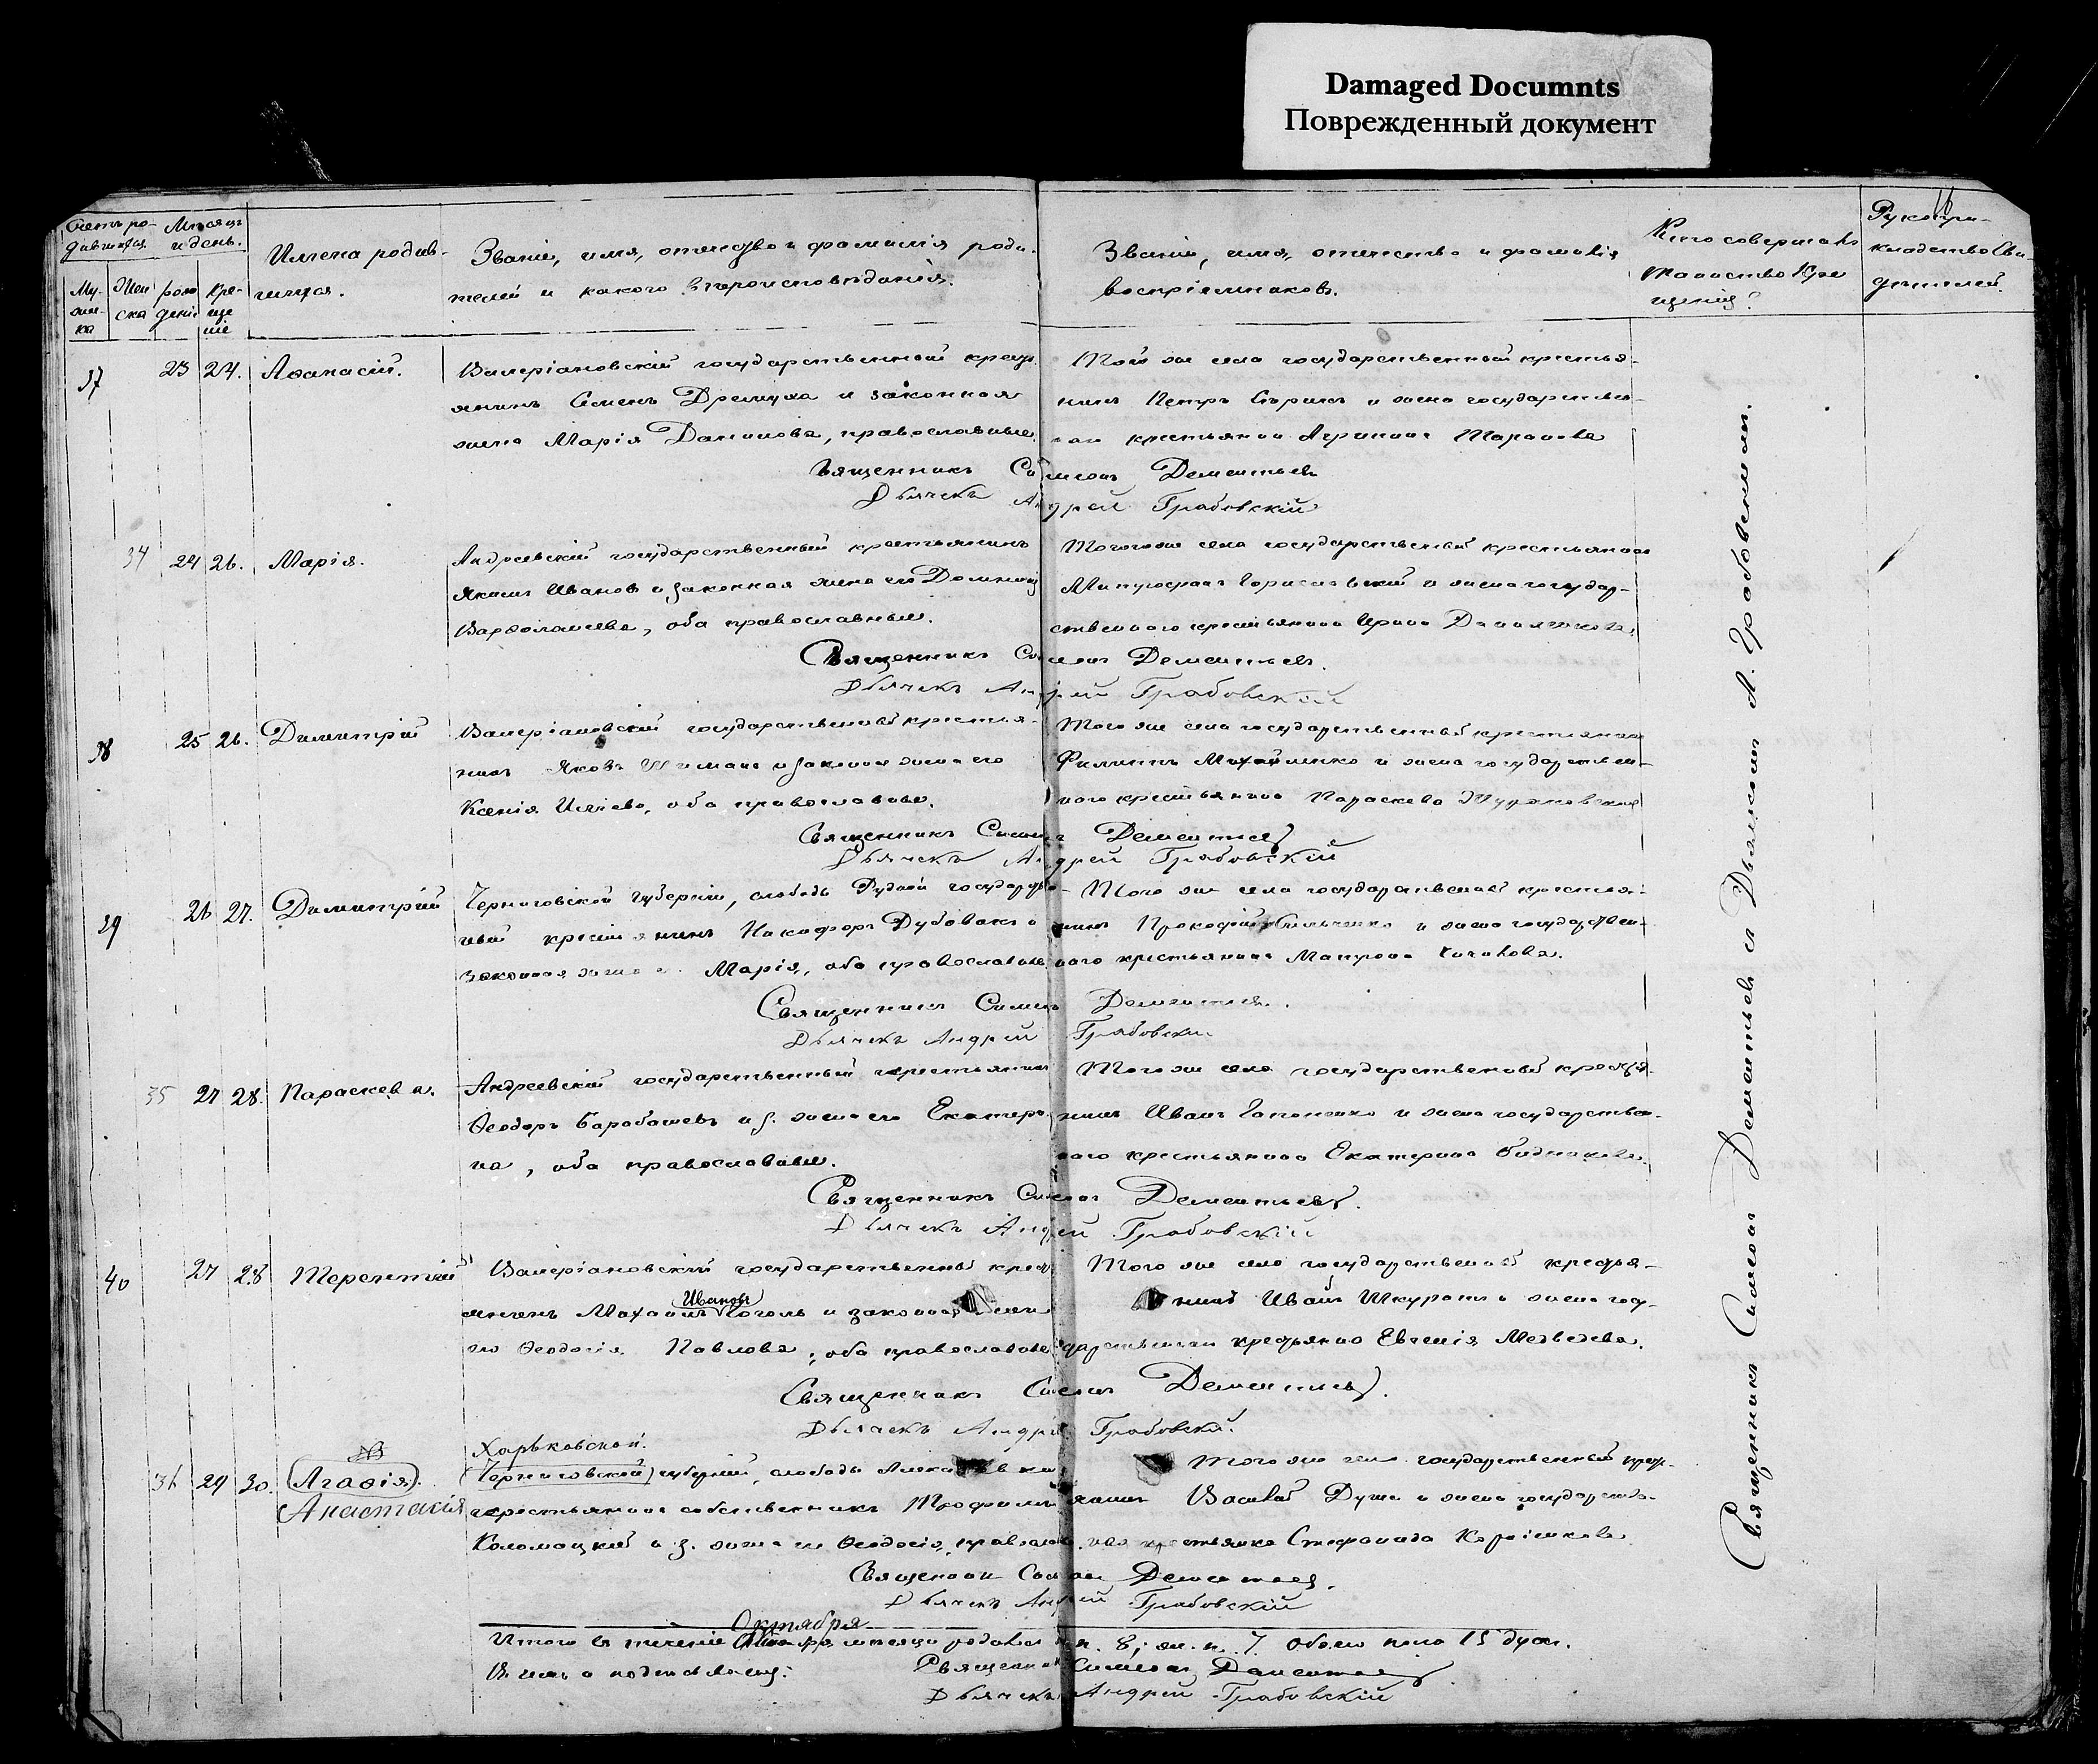 Damaged Documnts
Поврежденный документ
16
Счетъ ро-
дившихся
Мѣсяцъ
и день.
Му-
жес-
ка
Жен
ска
рож
денія
кре-
ще
нія
Имена родив-
шихся.
Званіе, имя, отечество и фамилія роди-
телей и какого вѣроисповѣданія.
Званіе, имя, отечество и фамилія
воспріемниковъ.
Кто совершалъ
таинство Кре
щенія?
Рукопри-
кладство Сви-
дѣтелей.
37 23 24. Аѳанасій.
Валеріановскій государственный крест
янинъ Семенъ Дремлуха и законная
жена Марія Данилова, православные.
Того же села государственный крестья-
нинъ Петръ Сѣрикъ и жена государствен-
наго крестьянина
Священникъ Симеонъ Дементьевъ
Дьячекъ Андрей Грабовскій
34 24 26. Марія.
Андреевскій государственный крестьянинъ
Якимъ Ивановъ и законная жена его Домникія
Варѳоламеева, оба православные.
Того же села государственный крестьянинъ
Митрофанъ и жена государ-
ственнаго крестьянина Ирина
Священникъ Симеонъ Дементьевъ.
Дьячекъ Андрей Грабовскій
38 25 26. Димитрій
Валеріановскій государственный крестья-
нинъ Яковъ и законная жена его
Ксенія Ильева, оба православные.
Того же села государственный крестьянинъ
Филиппъ Михайленко и жена государствен-
наго крестьянина Параскева
Священникъ Симеонъ Дементьевъ
Дьячекъ Андрей Грабовскій
39 26 27. Димитрій
Черниговской губерніи, слободы Рудней государствен-
ный крестьянинъ Никифоръ Дубовикъ и
законная жена его Марія, оба православные.
Того же села государственный крестья-
нинъ Прокофій и жена государствен-
наго крестьянина Матрона
Священникъ Симеонъ Дементьевъ.
Дьячекъ Андрей Грабовскій
35 27 28. Параскева.
Андреевскій государственный крестьянинъ
Ѳеодоръ Барабашевъ и з. жена его Екатери-
на, оба православные.
Того же села государственный крестья-
нинъ Иванъ Гапоненко и жена государствен-
наго крестьянина Екатерина
Священникъ Симеонъ Дементьевъ.
Дьячекъ Андрей Грабовскій
40 27 28 Терентій
Валеріановскій государственный крест
Ивановъ
янинъ Михаилъ Гоголь и законная жена
его Ѳеодосія Павлова, оба православные
Того же села государственный крестья-
нинъ Иванъ Шкурапъ и жена госу-
дарственнаго крестьянина Евгенія Медведева.
Священникъ Симеонъ Дементьевъ.
Дьячекъ Андрей Грабовскій.
NB
36 29 30. Агаѳія.
Анастасія
Харьковской.
Черниговской губерніи, слободы
крестьянинъ собственникъ Трофимъ
Коломацкій и з. жена его Ѳеодосія, православ.
Того же села государственный крест-
янинъ Василій Душа и жена государствен-
ная крестьянка Стефанида
Священникъ Симеонъ Дементьевъ.
Дьячекъ Андрей Грабовскій
Октября
Итого въ теченіе мѣсяца родилось м. п. 8; ж. п. 7. Обоего пола 15 душъ.
Въ чемъ и подписались:
Священникъ Симеонъ Дементьевъ
Дьячекъ Андрей Грабовскій
Священникъ Симеонъ Дементьевъ съ Дьячкомъ А. Грабовскимъ.